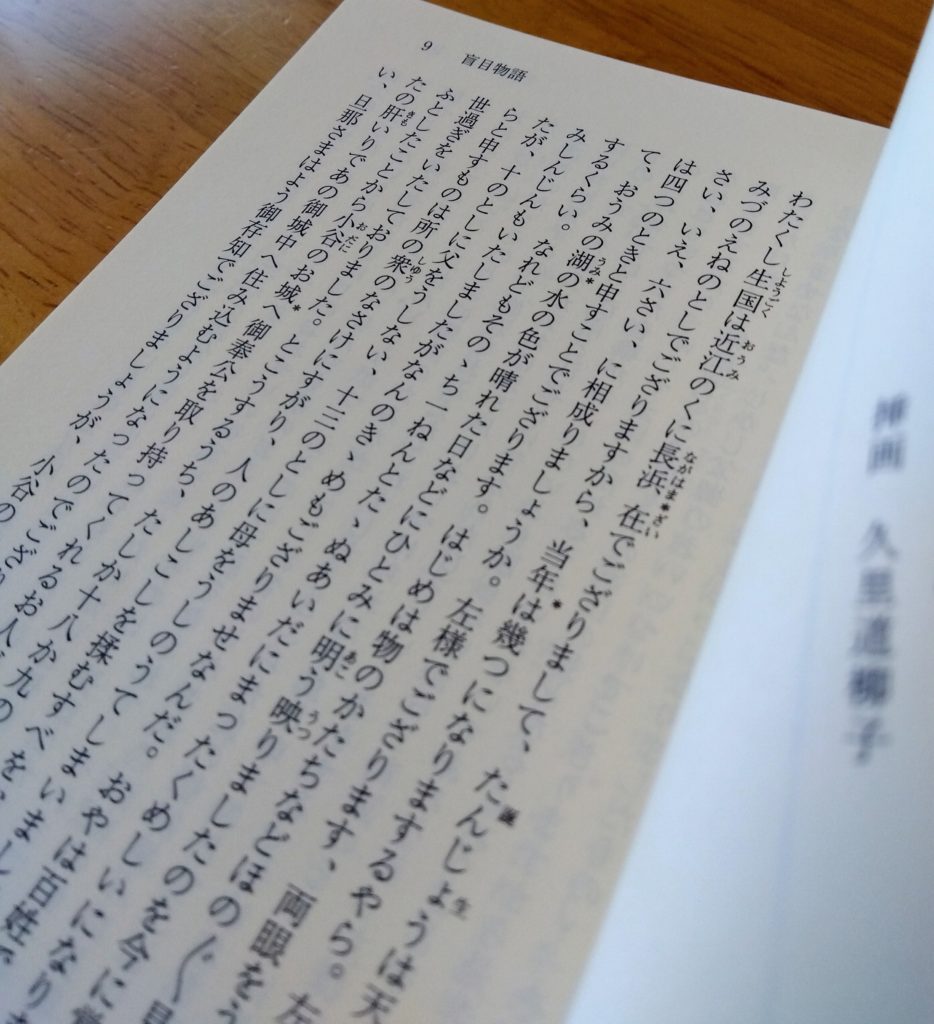 9 盲目物語
わたくし生国は近江のくに長浜在でござりまして、たんじょうは天
みづのえねのとしでござりますから、当年は幾つになりまするやら。左
さい、いえ、六さい、に相成りましょうか。左様でござります、両眼をう
は四つのときと申すことでござります。はじめは物のかたちなどほの〴〵見
て、おうみの湖の水の色が晴れた日などにひとみに明う映りましたのを今に覚
するくらい。なれどもそのゝち一ねんとたゝぬあいだにまったくめしいになりま
みしんじんもいたしましたがなんのきゝめもござりませなんだ。おやは百姓で
たが、十のとしに父をうしない、十三のとしに母をうしのうてしまいまし
らと申すものは所の衆のなさけにすがり、人のあしこしを揉むすべを
世過ぎをいたしておりました。とこうするうち、たしか十八か九の
ふとしたことから小谷のお城へ御奉公を取り持ってくれるお人がござり
たの肝いりであの御城中へ住み込むようになったのでござり
い、旦那さまはよう御存知でござりましょうが、小谷の
挿画 久里道柳子